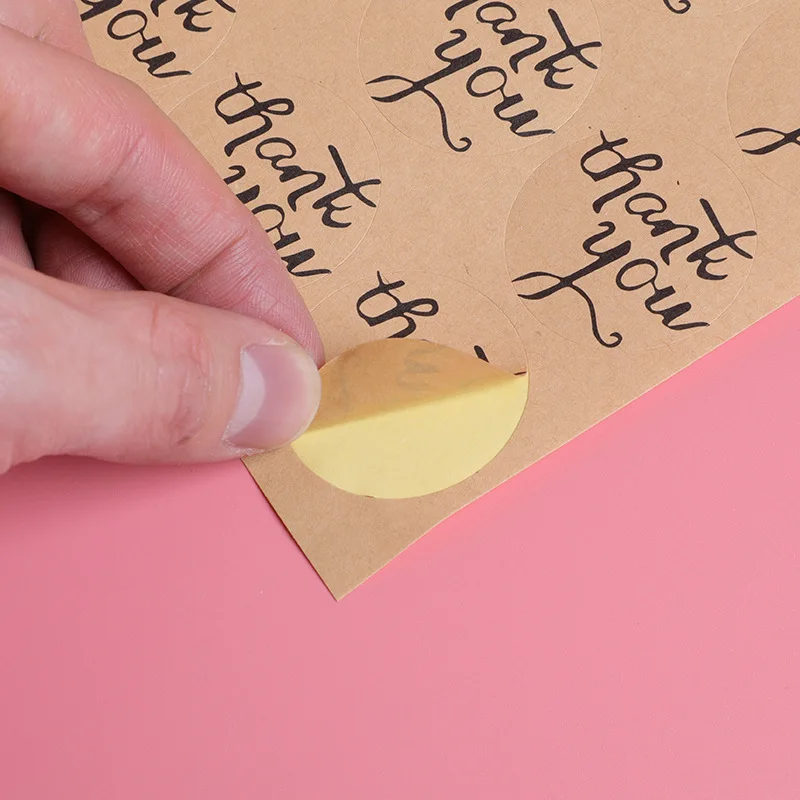 thank
you
thank
you
thank
you
thank
you
th